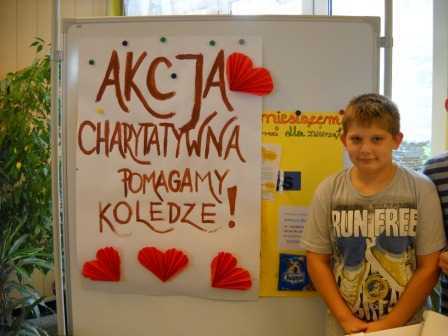 AKCJA
CHARYTATYWNA
POMAGAMY
KOLEDZE!
miesiącem
dla zwierząt
RUN FREE